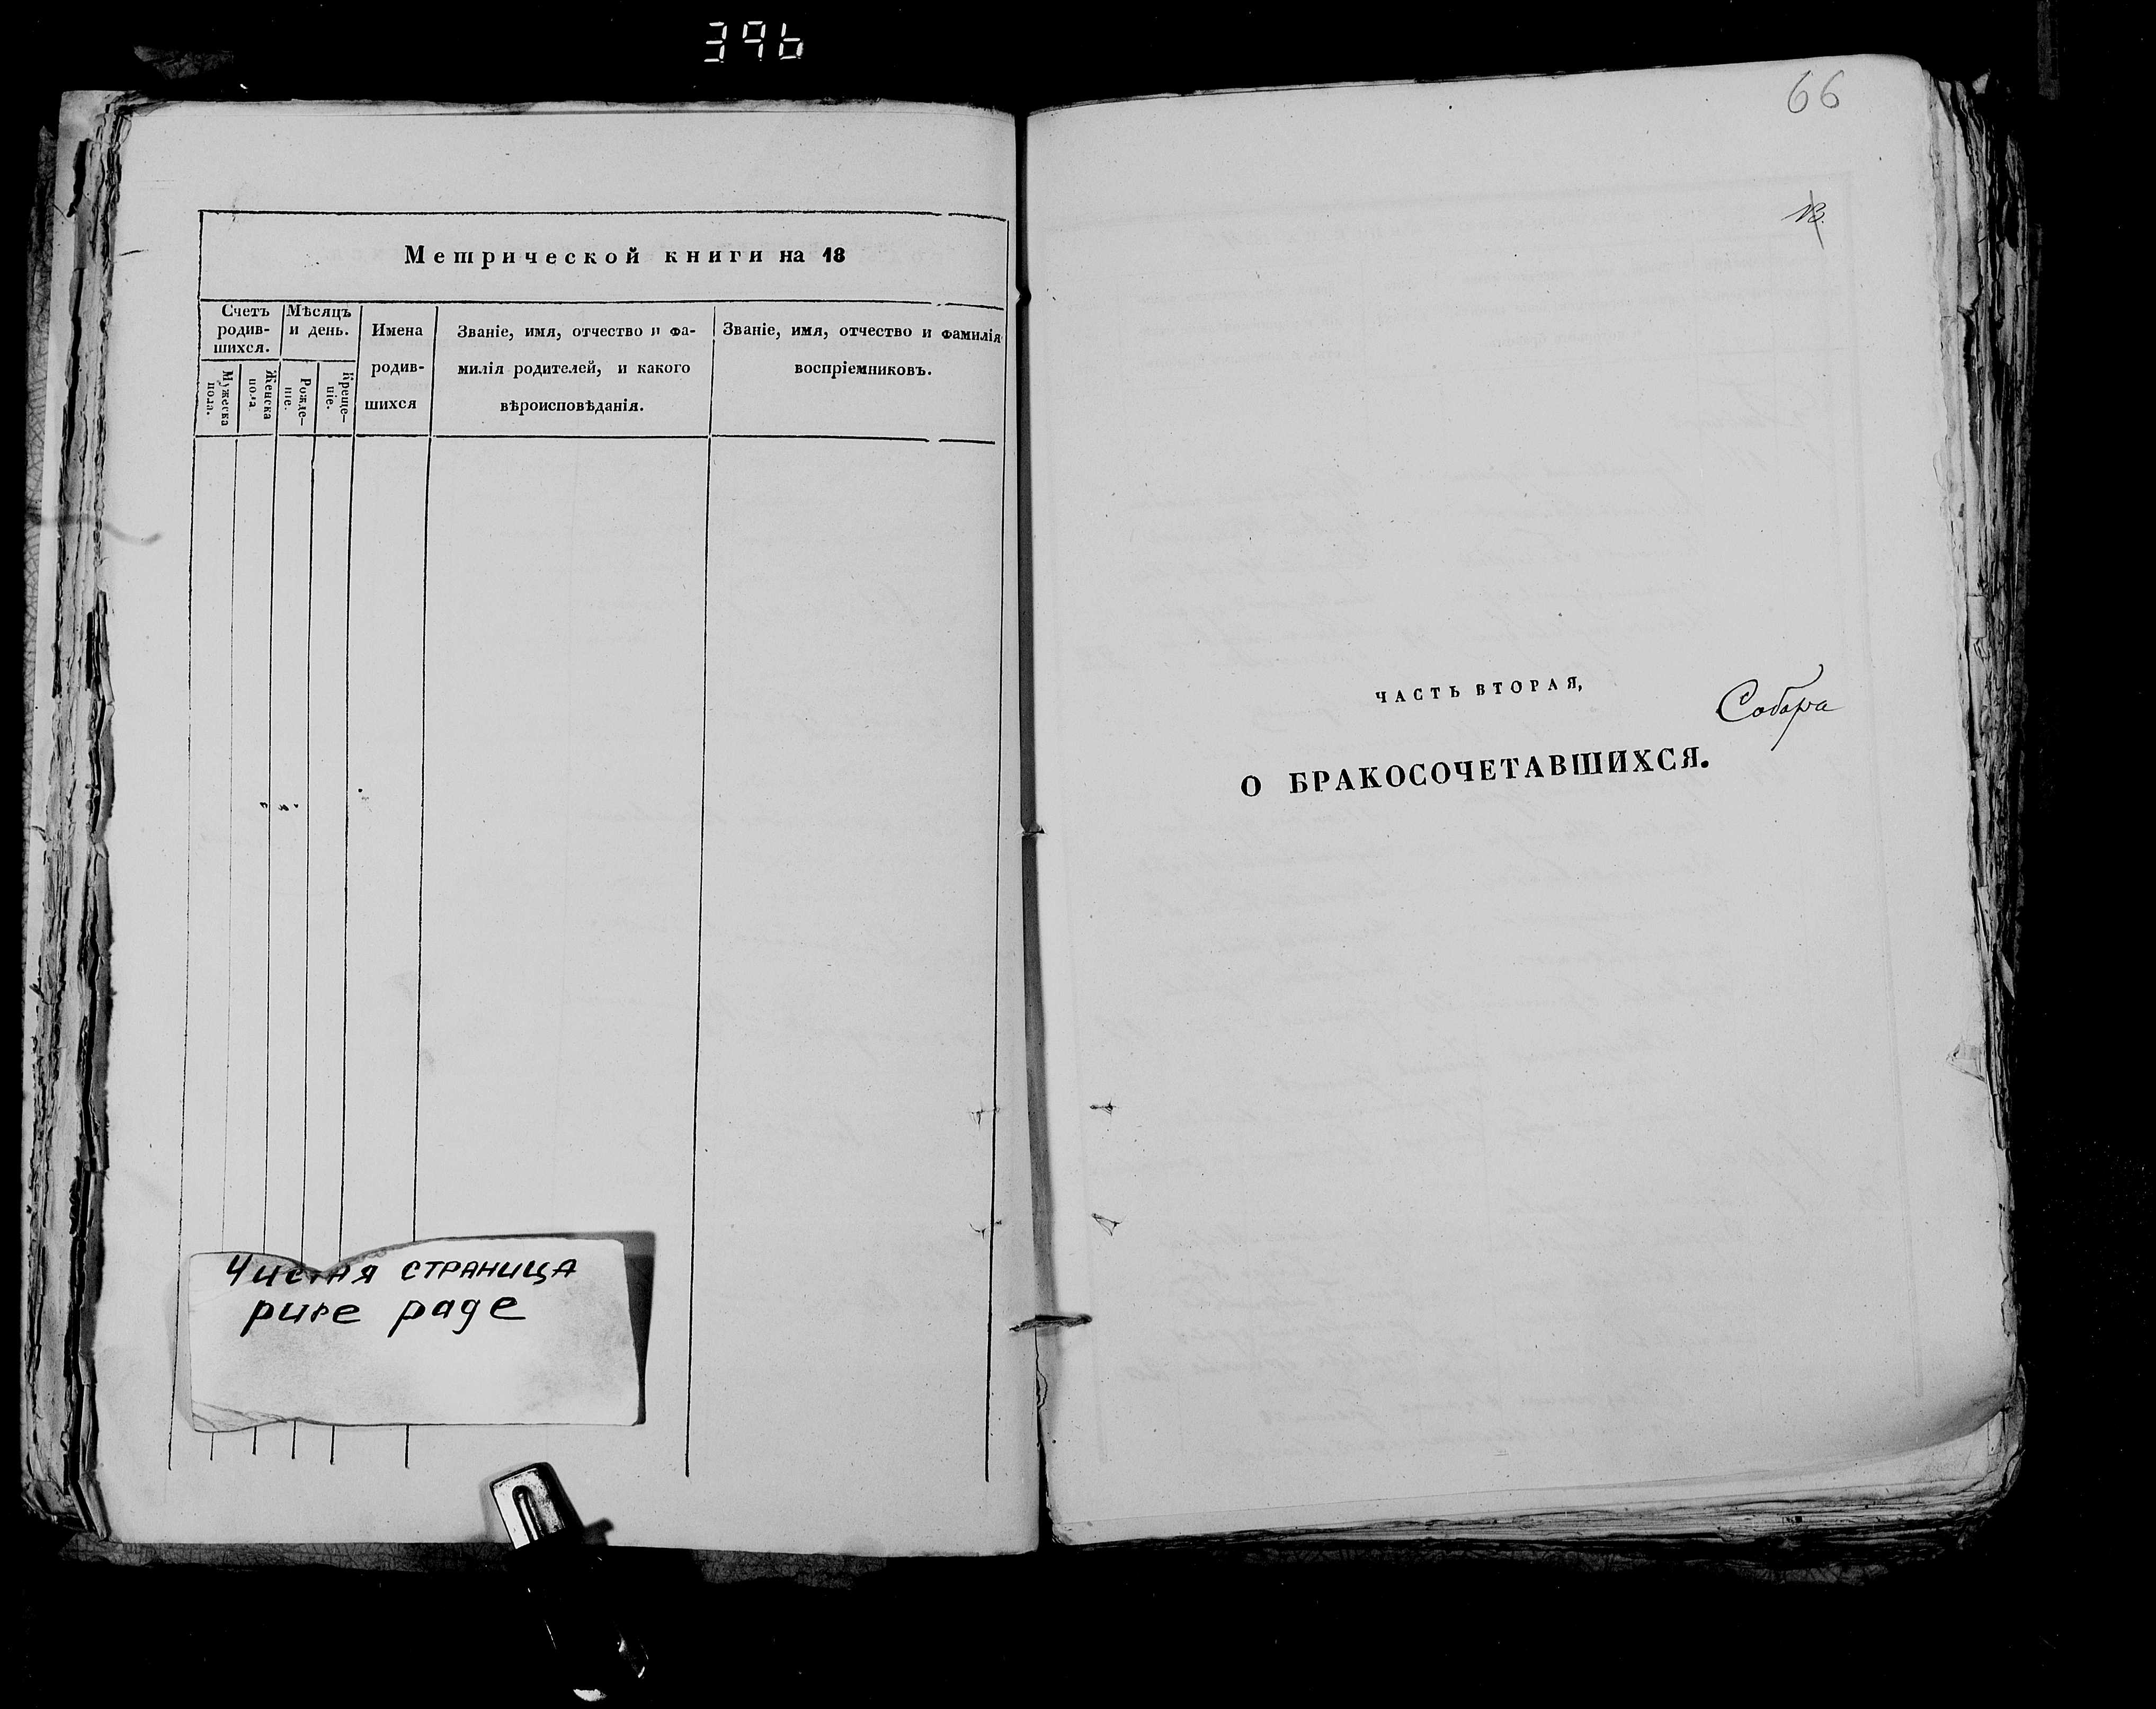 396
Метрической книги на 18
Счетъ родив-шихся.
Мѣсяцъ и день.
Мужеска пола.
Женска пола.
Рожде-ніе.
Креще-ніе.
Имена
родив-
шихся
Званіе, имя, отчество и фа-
милія родителей, и какого
вѣроисповѣданія.
Званіе, имя, отчество и фамилія
воспріемниковъ.
Чистая страница
pure page
66
ЧАСТЬ ВТОРАЯ,
Собора
О БРАКОСОЧЕТАВШИХСЯ.